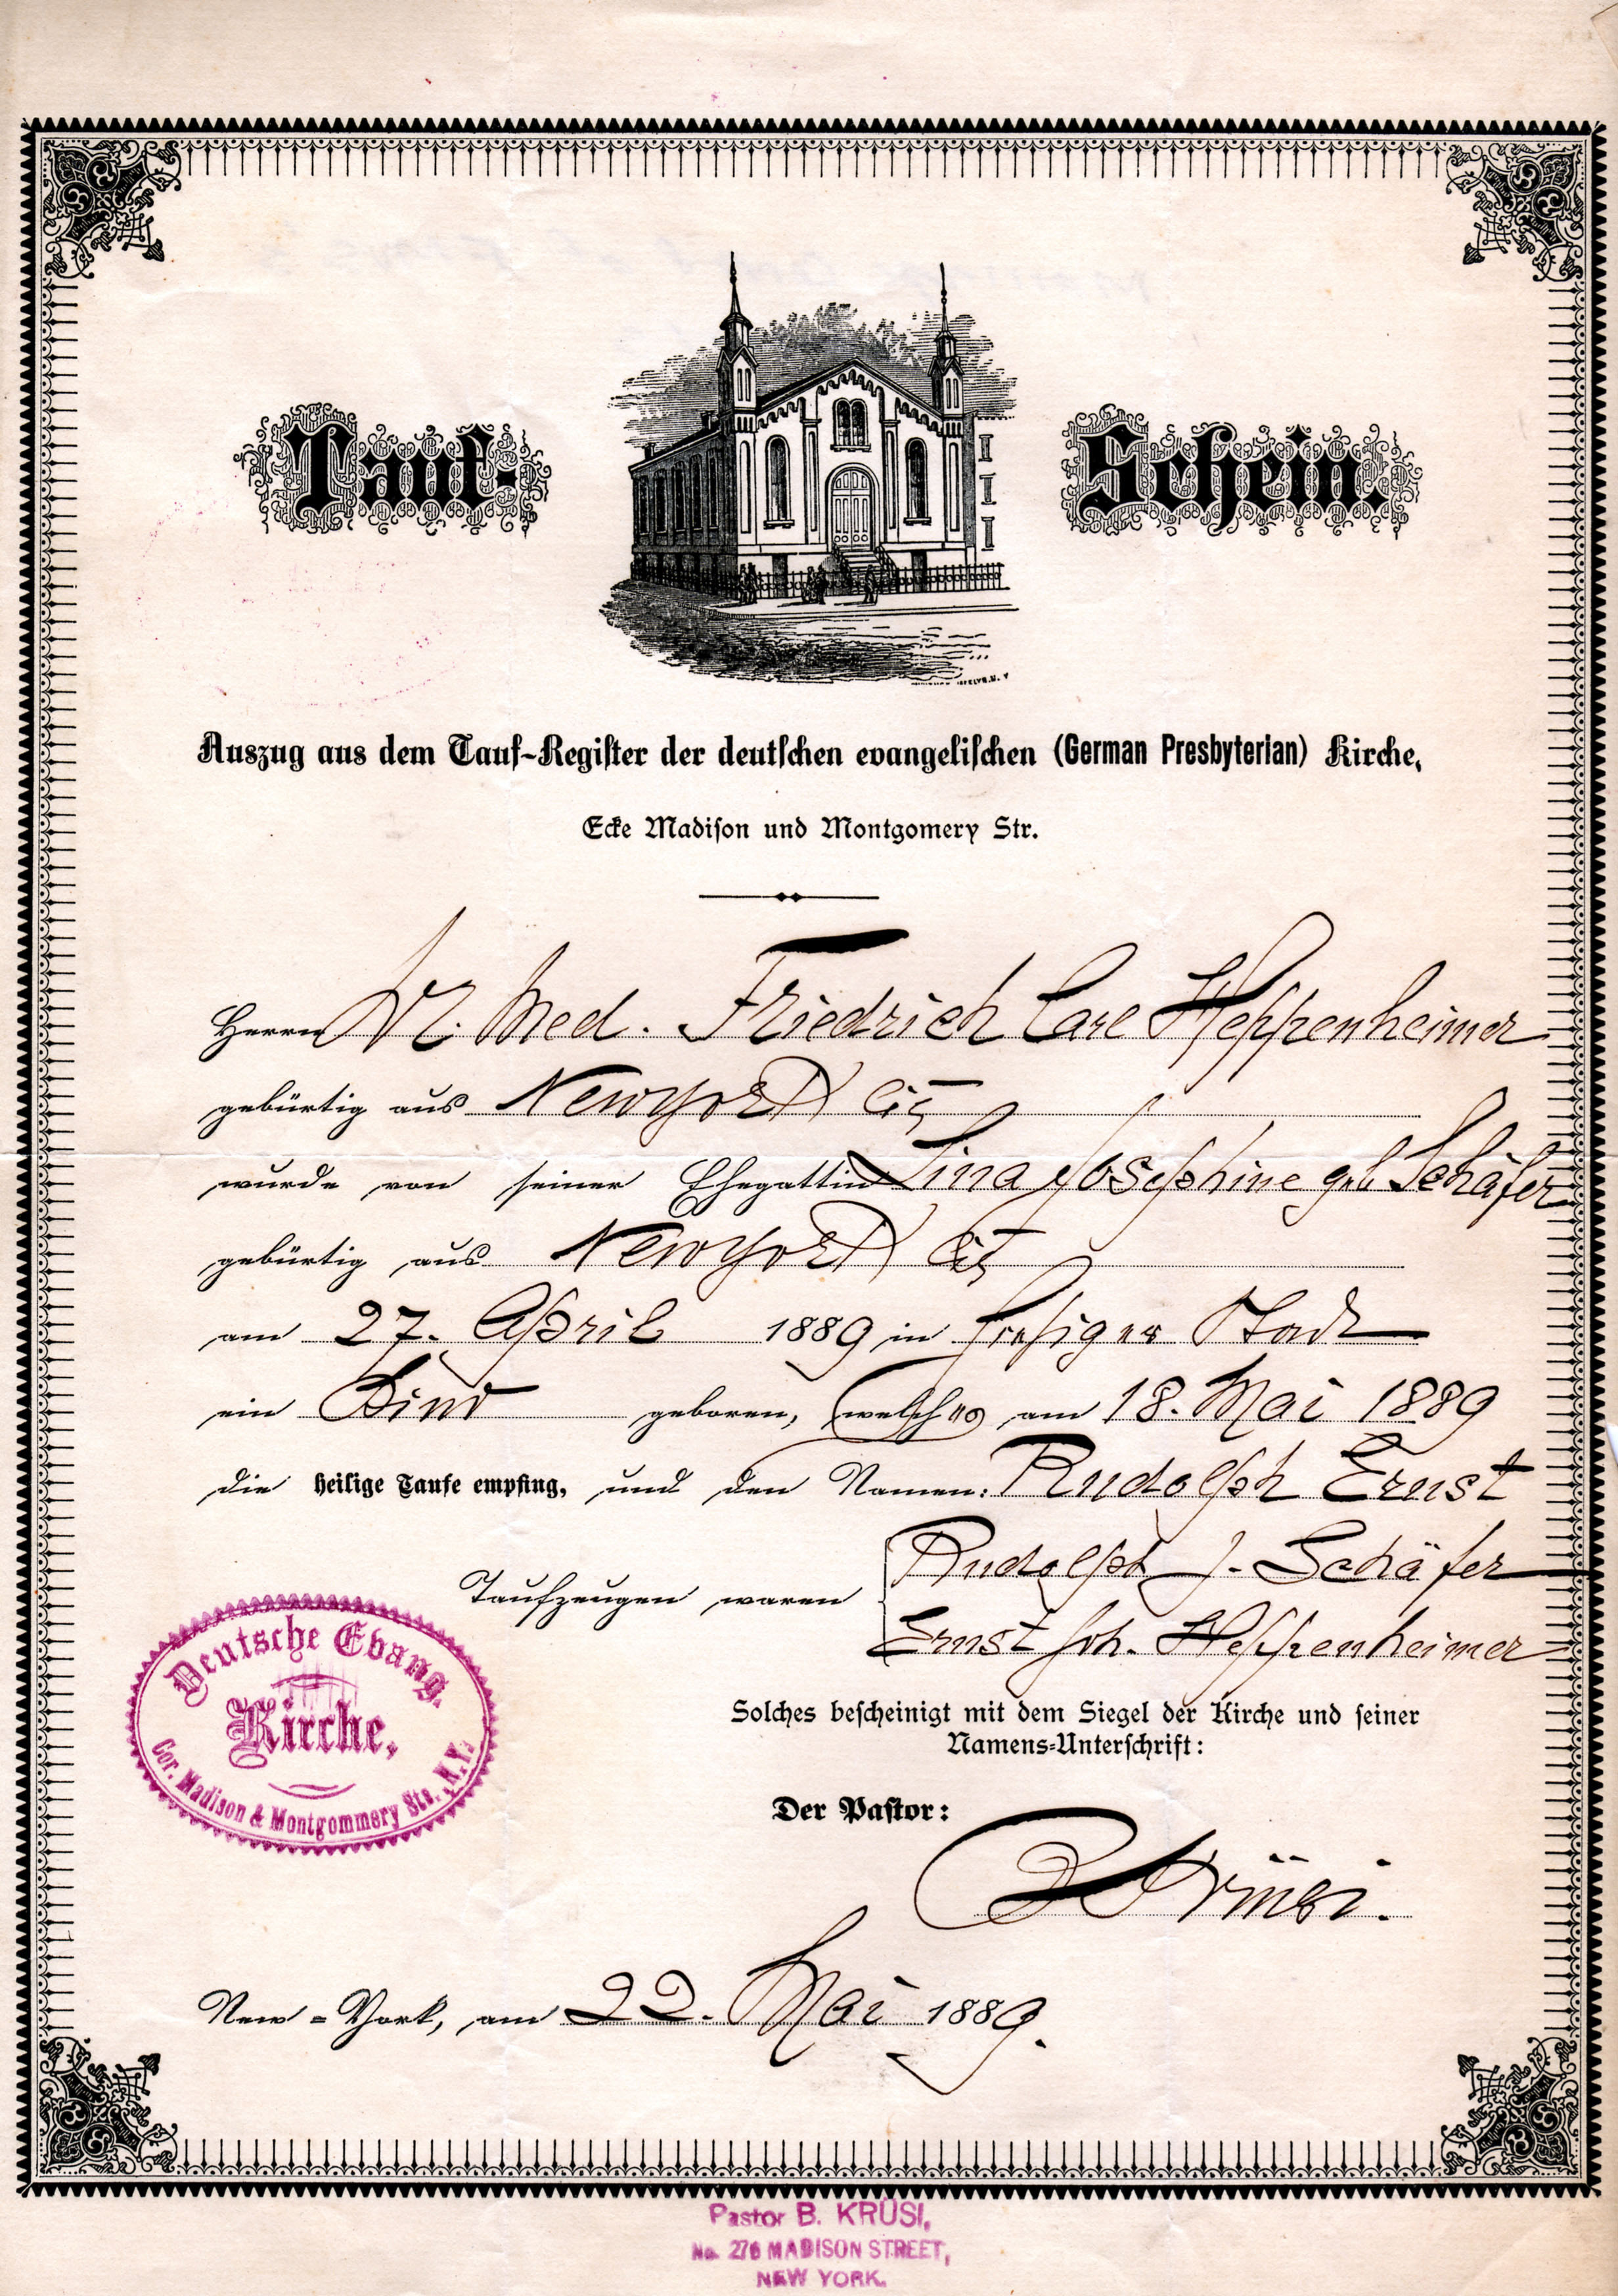 Tauf-Schein.
Auszug aus dem Tauf-Register der deutschen evangelischen (German Presbyterian) Kirche,
Ecke Madison und Montgomery Str.
Herrn Dr. Med. Friedrich Carl Heppenheimer
gebürtig aus Newyork City
wurde von seiner Ehegattin Lina Josephine geb Schäfer
gebürtig aus Newyork City
am 27. April 1889 in hiesiger Stadt
ein Kind geboren, welches am 18. Mai 1889
die heilige Taufe empfing, und den Namen: Rudolph Ernst
Taufzeugen waren
Rudolph J. Schäfer
Ernst Joh. Heppenheimer
Deutsche Evang.
Kirche,
Cor. Madison & Montgommery Sts., N.Y.
Solches bescheinigt mit dem Siegel der Kirche und seiner
Namens-Unterschrift:
Der Pastor:
B Krüsi.
New-York, am 22. Mai 1889.
Pastor B. KRÜSI,
No. 276 MADISON STREET,
NEW YORK.